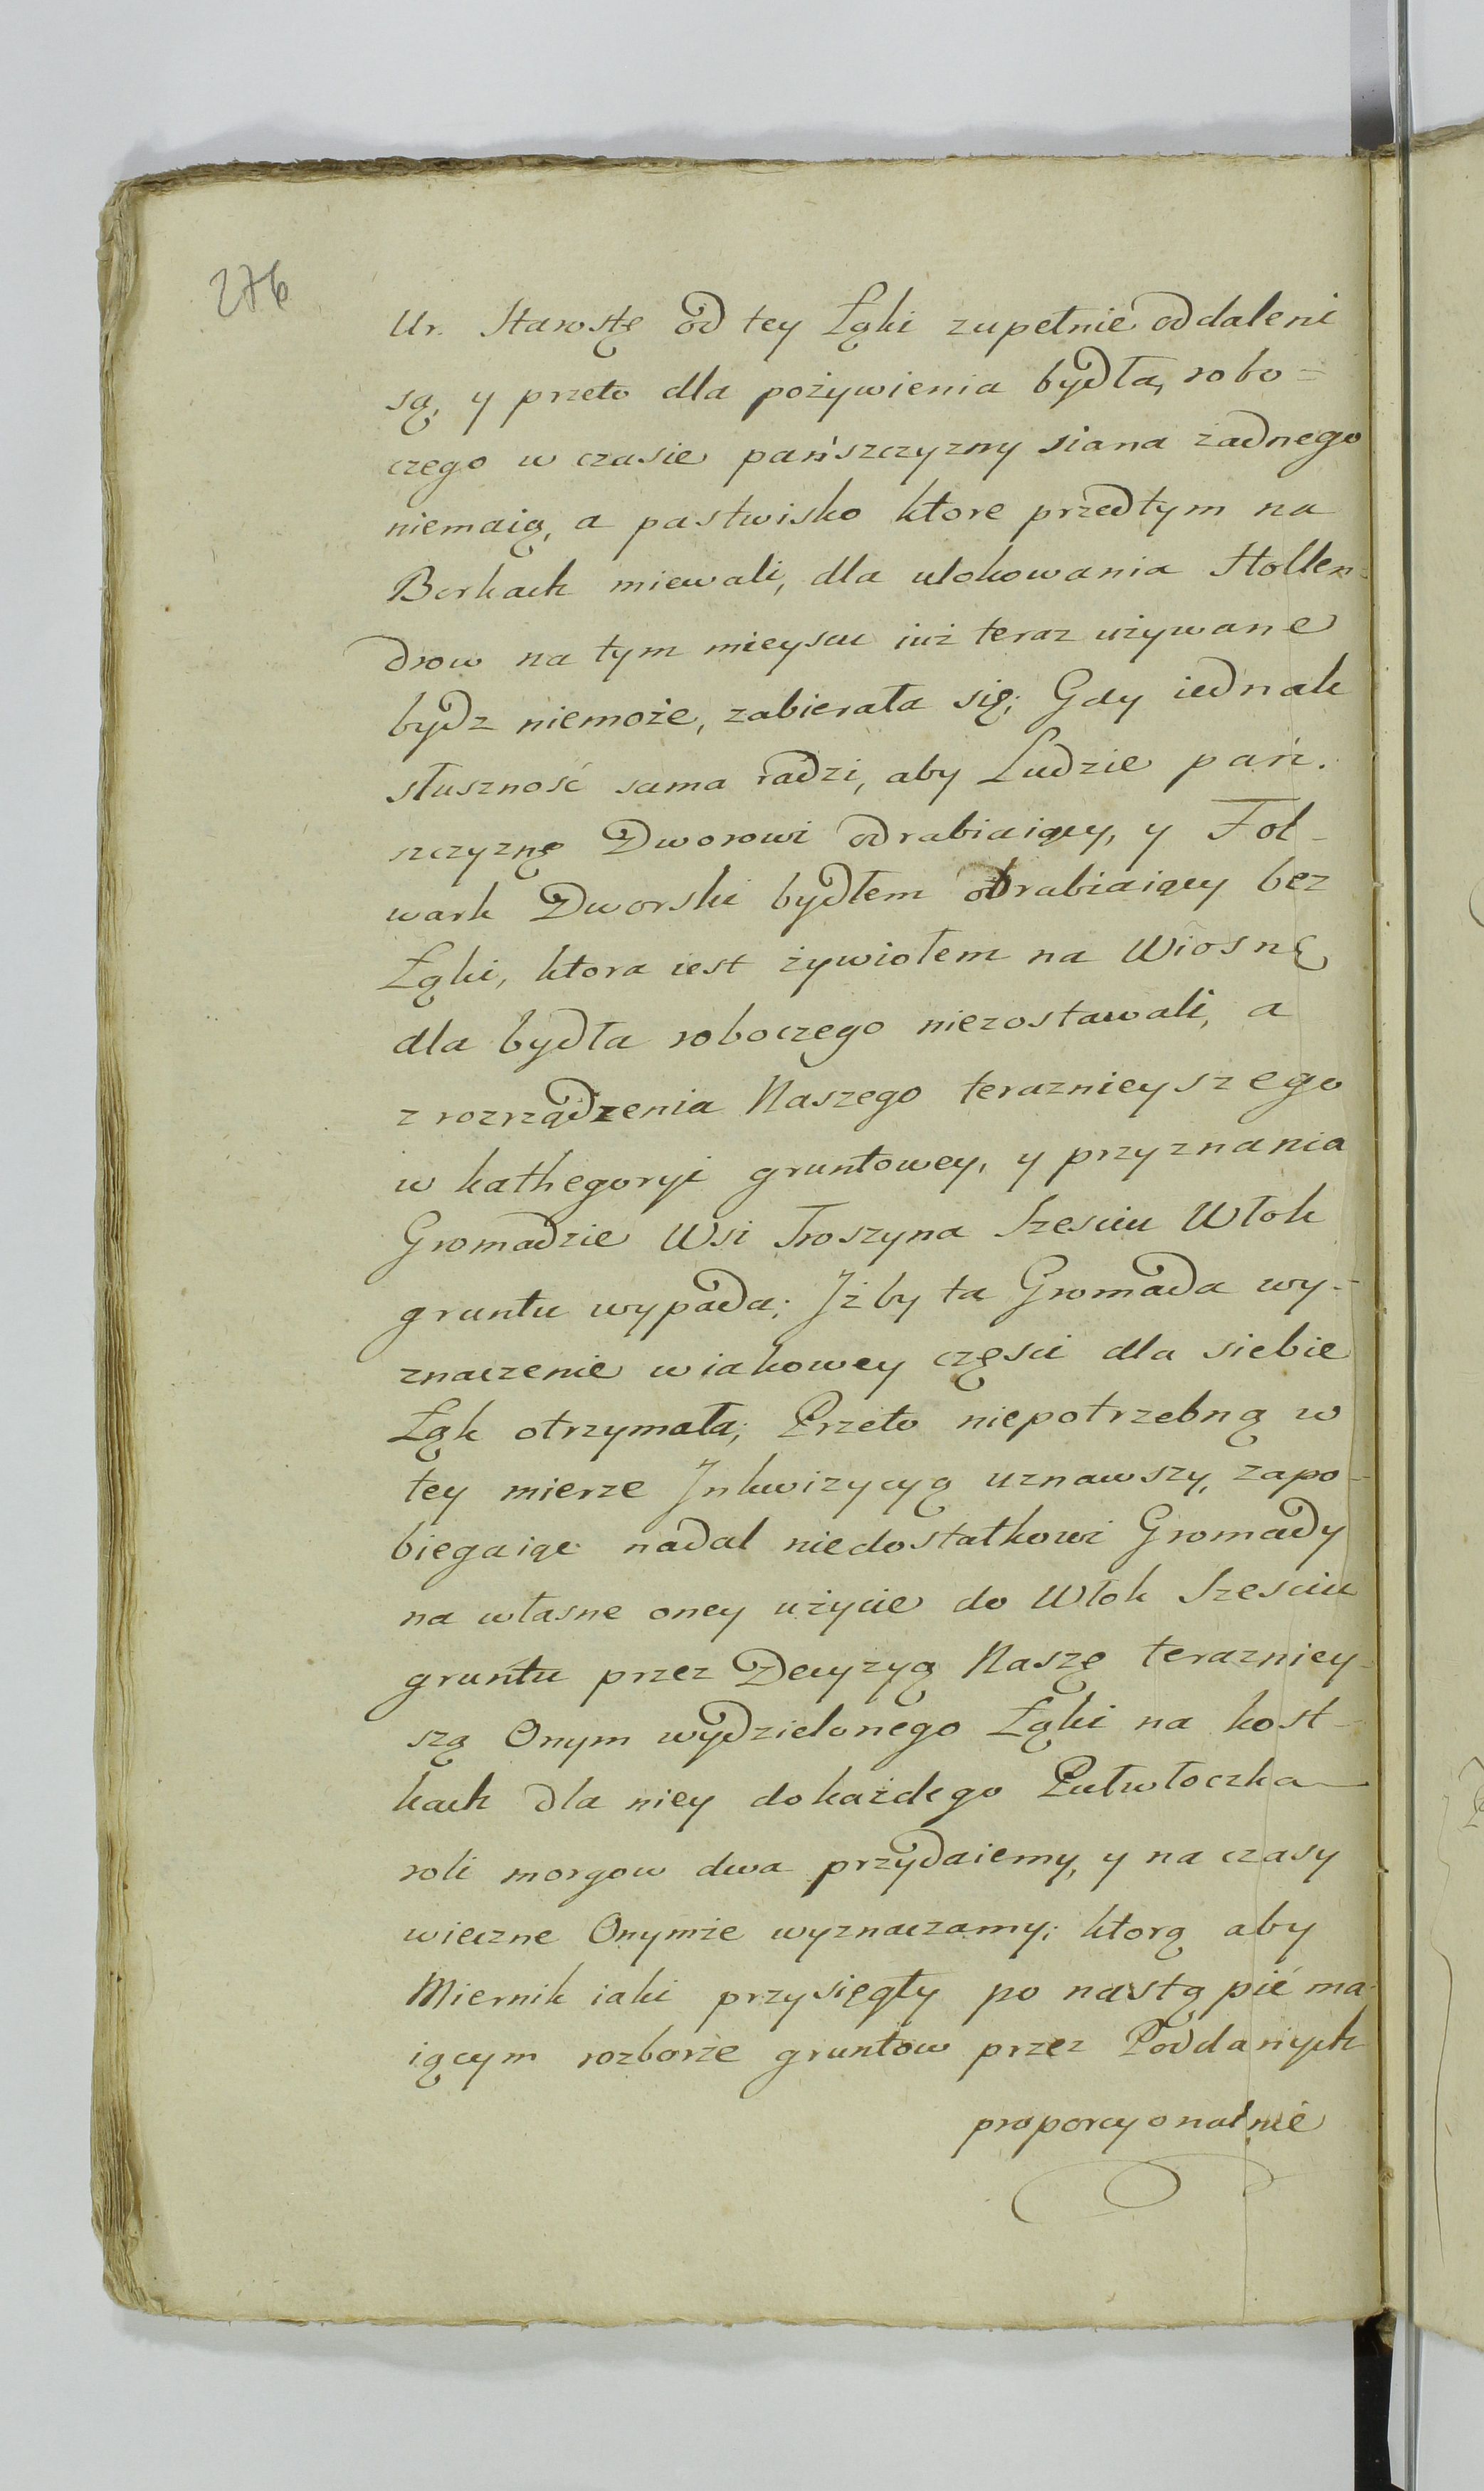 276
Ur. Stawskę od tey Łąki zupełnie oddaleni
są, y przeto dla pożywienia bydła, robo=
czego w czasie pańszczyzny siana żadnego
niemaią, a pastwisko ktore przedtym na
Borkach miewali, dla ulokowania Hollen-
drow na tym mieyscu iuż teraz używane
bydz niemoże, zabierała się; Gdy iednak
słuszność sama radzi, aby Ludzie pań-
szczyznę Dworowi odrabiaiący, y Fol-
wark Dworski bydłem obrabiaiący bez
Łąki, ktora iest żywiołem na Wiosnę
dla bydła roboczego niezostawali, a
z rozrządzenia Naszego teraznieyszego
w kathegoryi gruntowey, y przyznania
Gromadzie Wsi Troszyna Szesciu Włok
gruntu wypada; Jżby ta Gromada wy-
znaczenie wiakowey częsci dla siebie
Łąk otrzymała; Przeto niepotrzebną w
tey mierze Jnkwizycyą uznawszy, zapo-
biegaiąc nadal niedostatkowi Gromady
na własne oney użycie do Włok Szesciu
gruntu przez Decyzyą Naszę terazniey-
szą Onym wydzielonego Łąki na kost-
kach dla niey do każdego Pułwłoczka
roli morgow dwa przydaiemy, y na czasy
wieczne Onymże wyznaczamy; ktorą aby
Miernik iaki przysięgły po nastąpić ma-
iącym rozborze gruntow przez Poddanych
proporcyonalnie